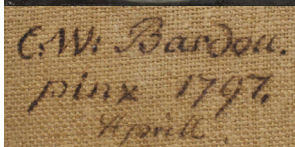 C.W: Bardou.
pinx 1797.
Aprill